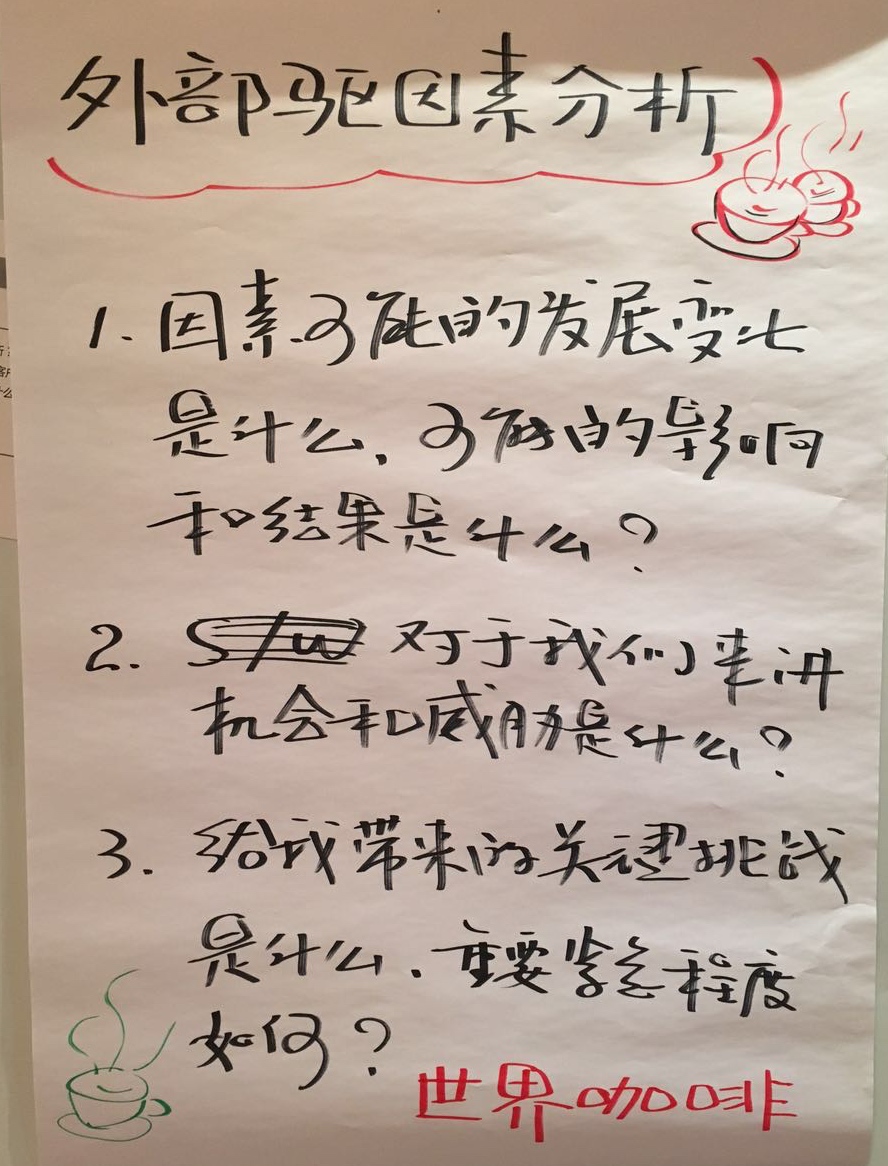 外部驱因素分析
1. 因素可能的发展变化
是什么，可能的影响
和结果是什么？
2. 对于我们来讲
机会和威胁是什么？
3. 给我带来的关键挑战
是什么、重要紧急程度
如何？
世界咖啡